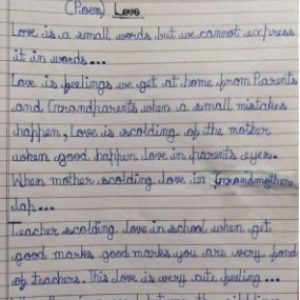 (Poem) Love
Love is a small words but we cannot express
it in words...
Love is feelings we get at home from Parents
and Grandparents when a small mistakes
happen, Love is scolding of the mother
when good happen love in parents eyes.
When mother scolding love in Grandmother
lap...
Teacher scolding love in school when get
good marks good marks you are very bond
of teachers. This love is very cute feeling...